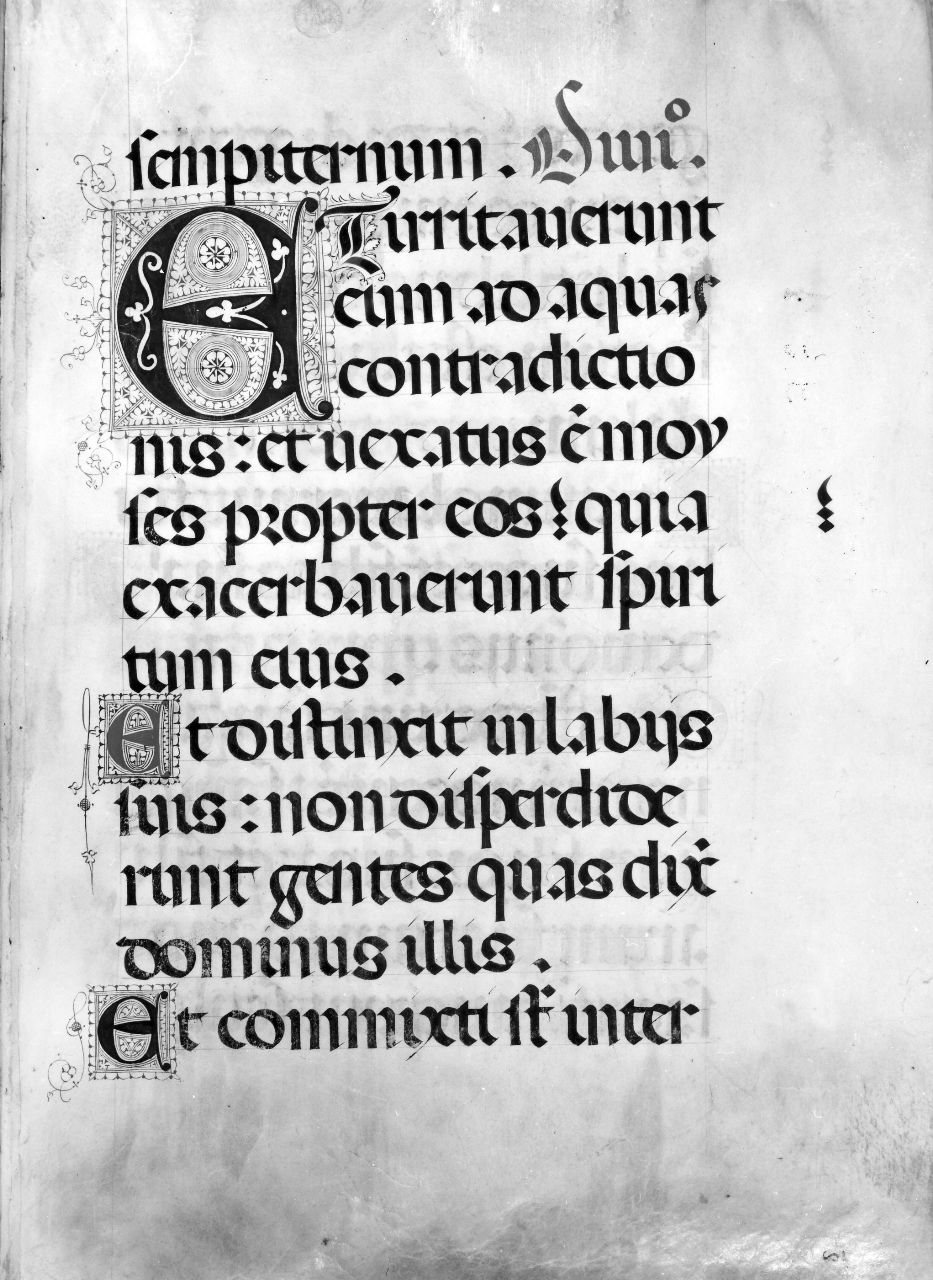 sempiternum . Diuiº.
ET irritauerunt
eum ad aquas
contradictio
nis : et uexatus ē moy
ses propter eos : quia
exacerbauerunt spiri
tum eius .
Et distinxit in labijs
suis : non disperdide
runt gentes quas dix̄
dominus illis .
Et commixti sūt inter